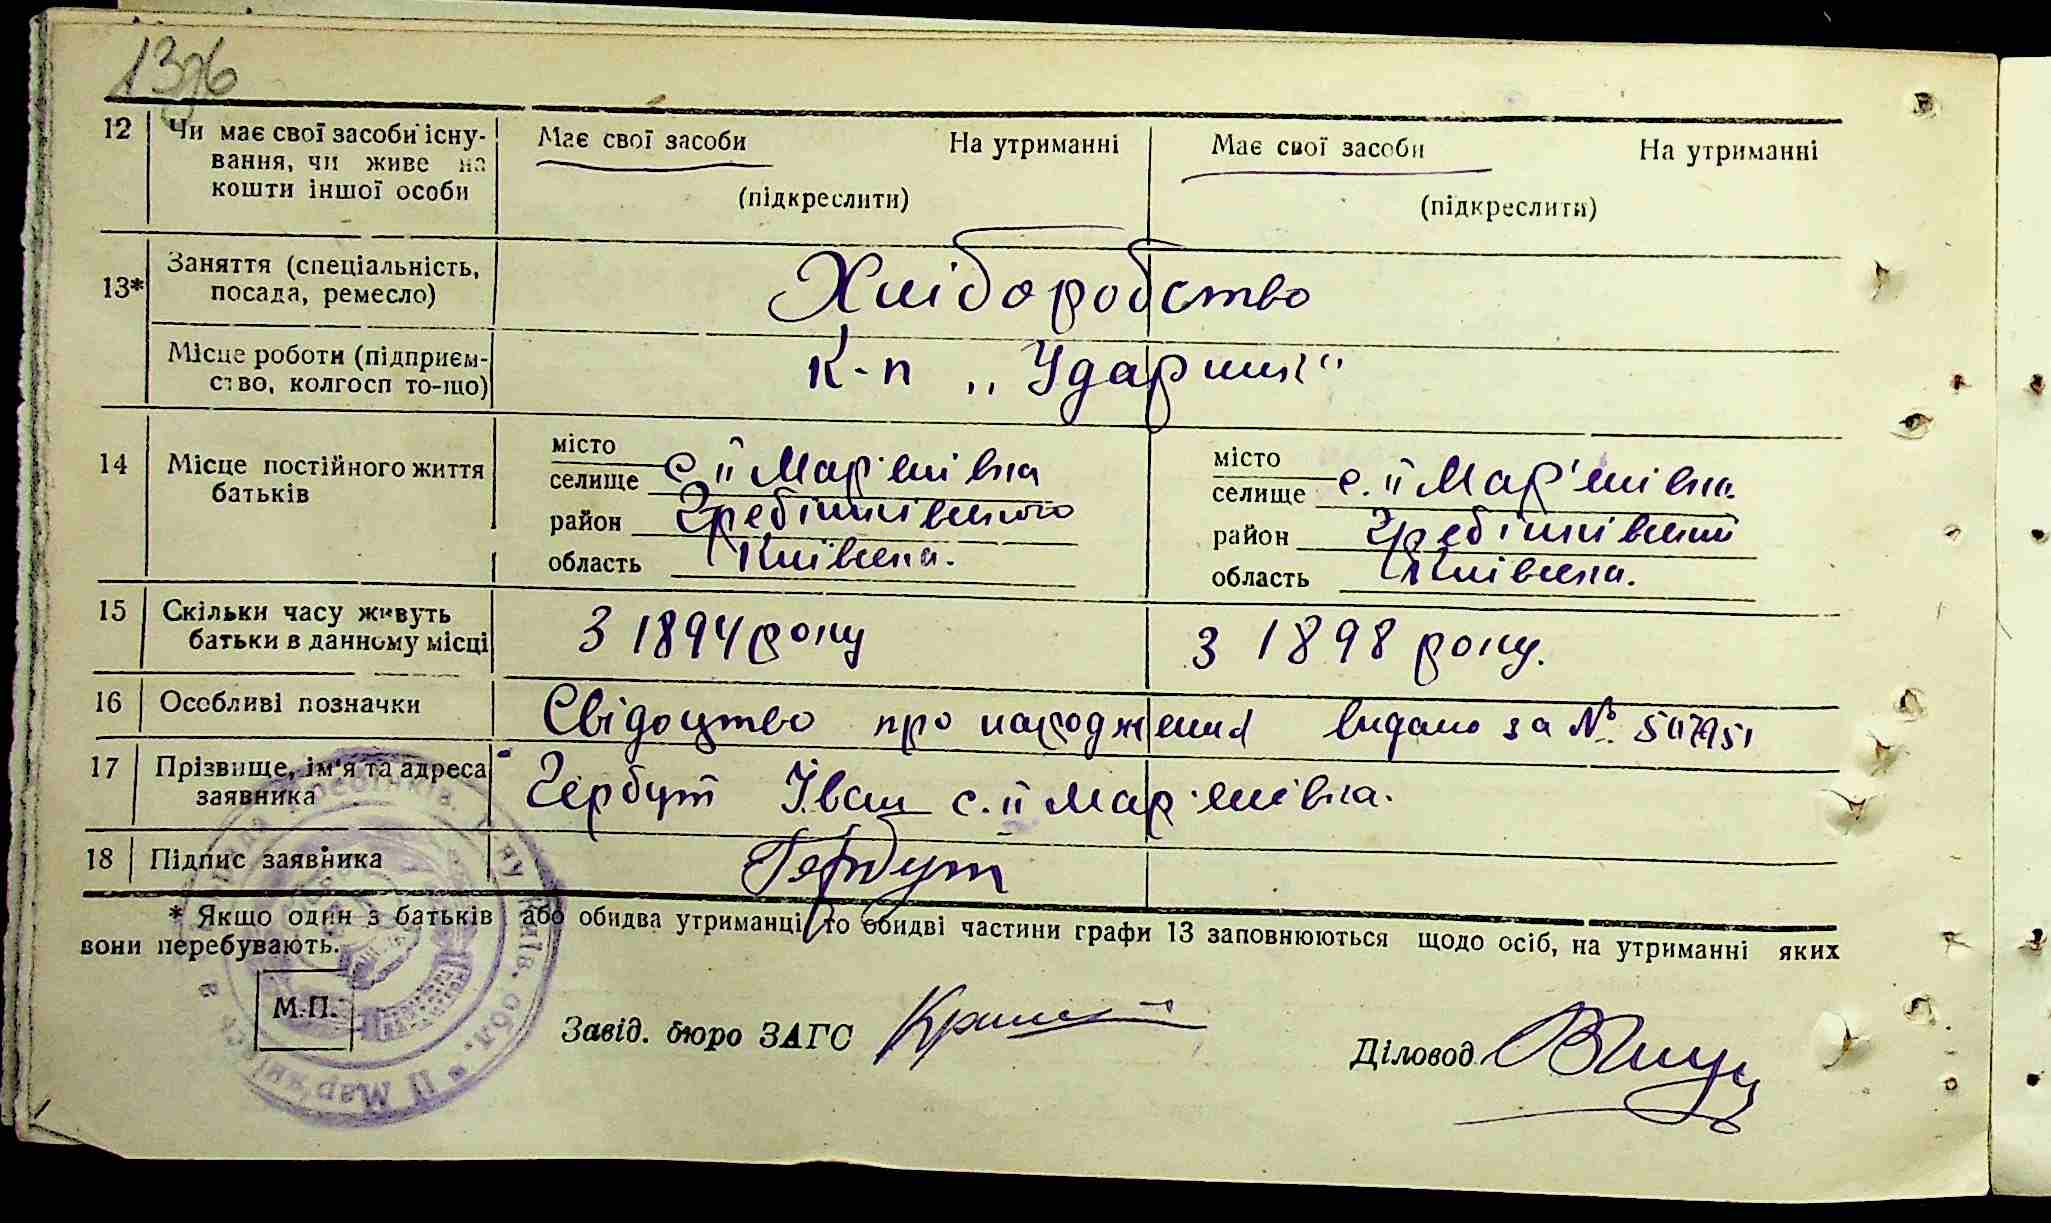 12 Чи має свої засоби існу-
вання, чи живе на
кошти іншої особи
Має свої засоби На утриманні
(підкреслити)
Має свої засоби На утриманні
(підкреслити)
13* Заняття (спеціальність,
посада, ремесло)
Хліборобство
Місце роботи (підприєм-
ство, колгосп то-що)
К-п „Ударник"
14 Місце постійного життя
батьків
місто
селище с. ІІ Мар'янівка
район Гребінківського
область Київська.
місто
селище с. ІІ Мар'янівка
район Гребінківський
область Київська.
15 Скільки часу живуть
батьки в данному місці
З 1894 року
з 1898 року.
16 Особливі позначки
Свідоцтво про народження видано за №
17 Прізвище, ім'я та адреса
заявника
Гербут Іван с. ІІ Мар'янівка.
18 Підпис заявника
Гербут
* Якщо один з батьків або обидва утриманці, то обидві частини графи 13 заповнюються щодо осіб, на утриманні яких
вони перебувають.
М.П.
Завід. бюро ЗАГС
Діловод